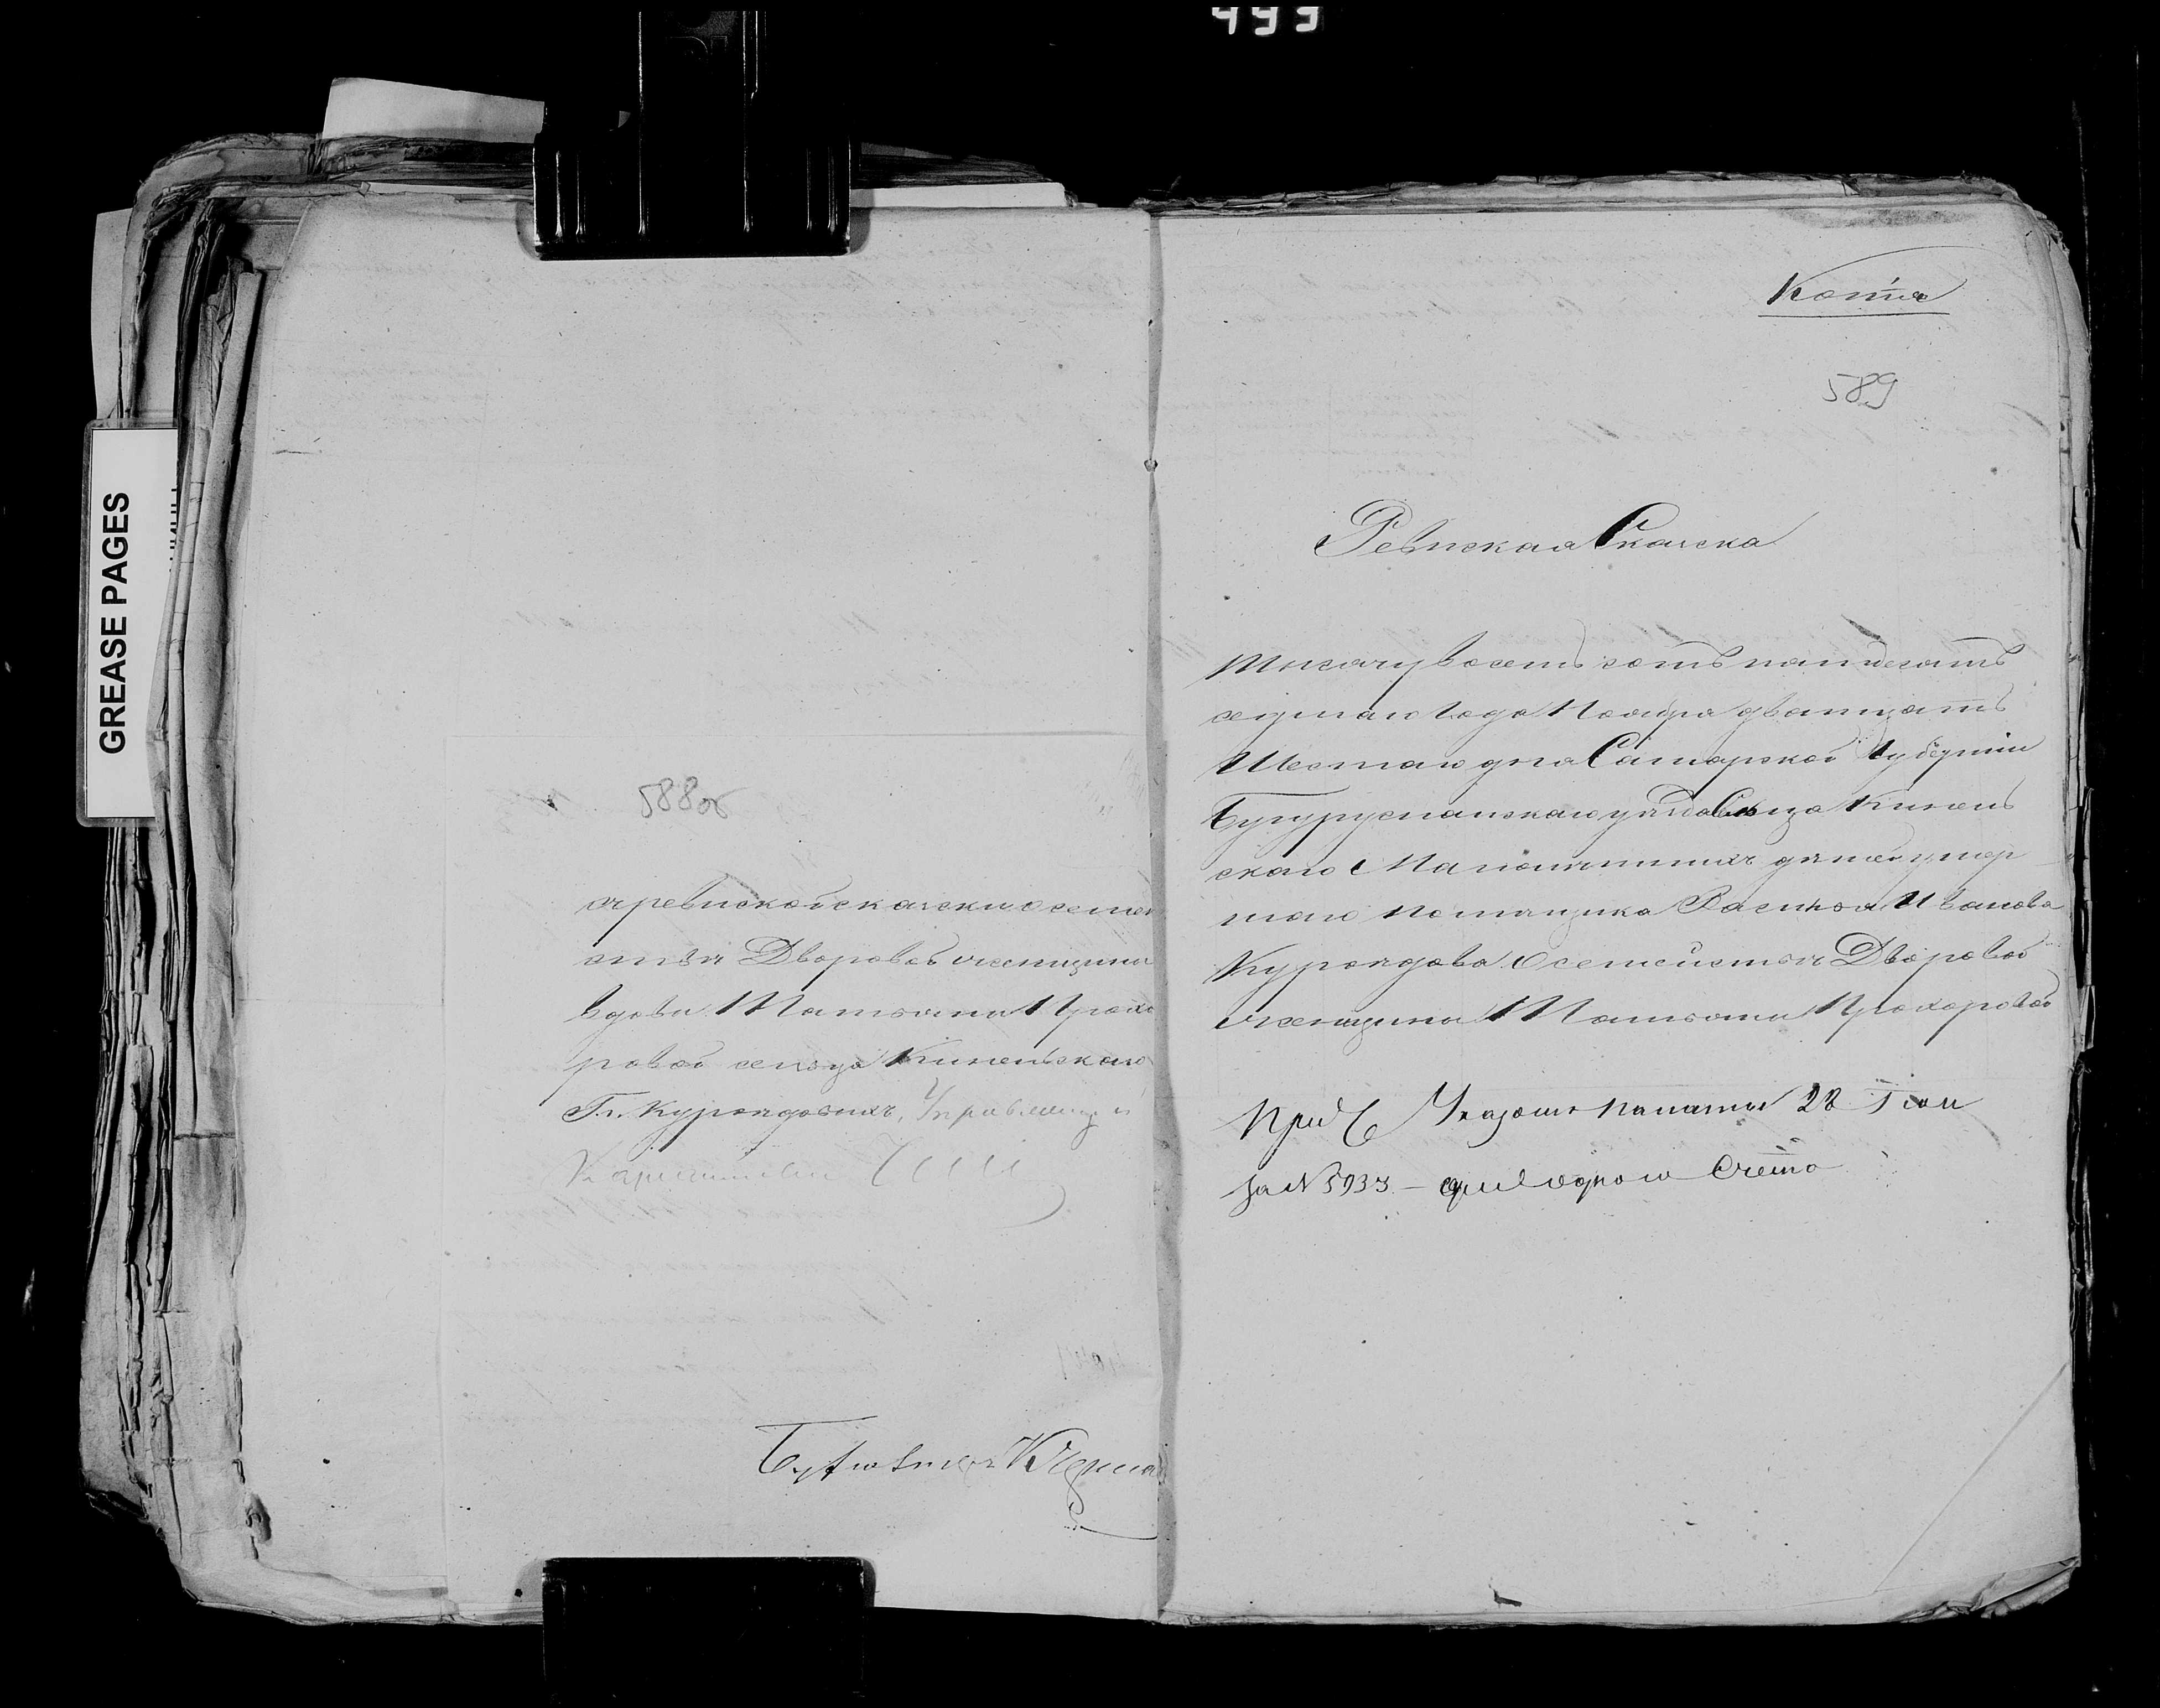 499
GREASE PAGES
588об
къ ревиской скаски о семей
ствѣ Дворовой женщины
вдовы Татьяны Прохо
ровой сельца Кинельскаго
Г.г. Куроѣдовыхъ, Управляющ
Копія
589
Ревиская Скаска
Тысячу восемь сотъ пятдесятъ
седмаго года Ноября дватцать
Шестаго дня Самарской Губерніи
Бугурусланскаго уѣзда Сельца Кинель
скаго Малолѣтныхъ дѣтей умер
шаго помѣщика Василья Иванова
Куроѣдова О семействѣ Дворовой
женщины Татьяны Прохоровой
При Указѣ Палаты 28
за N 5933 – для